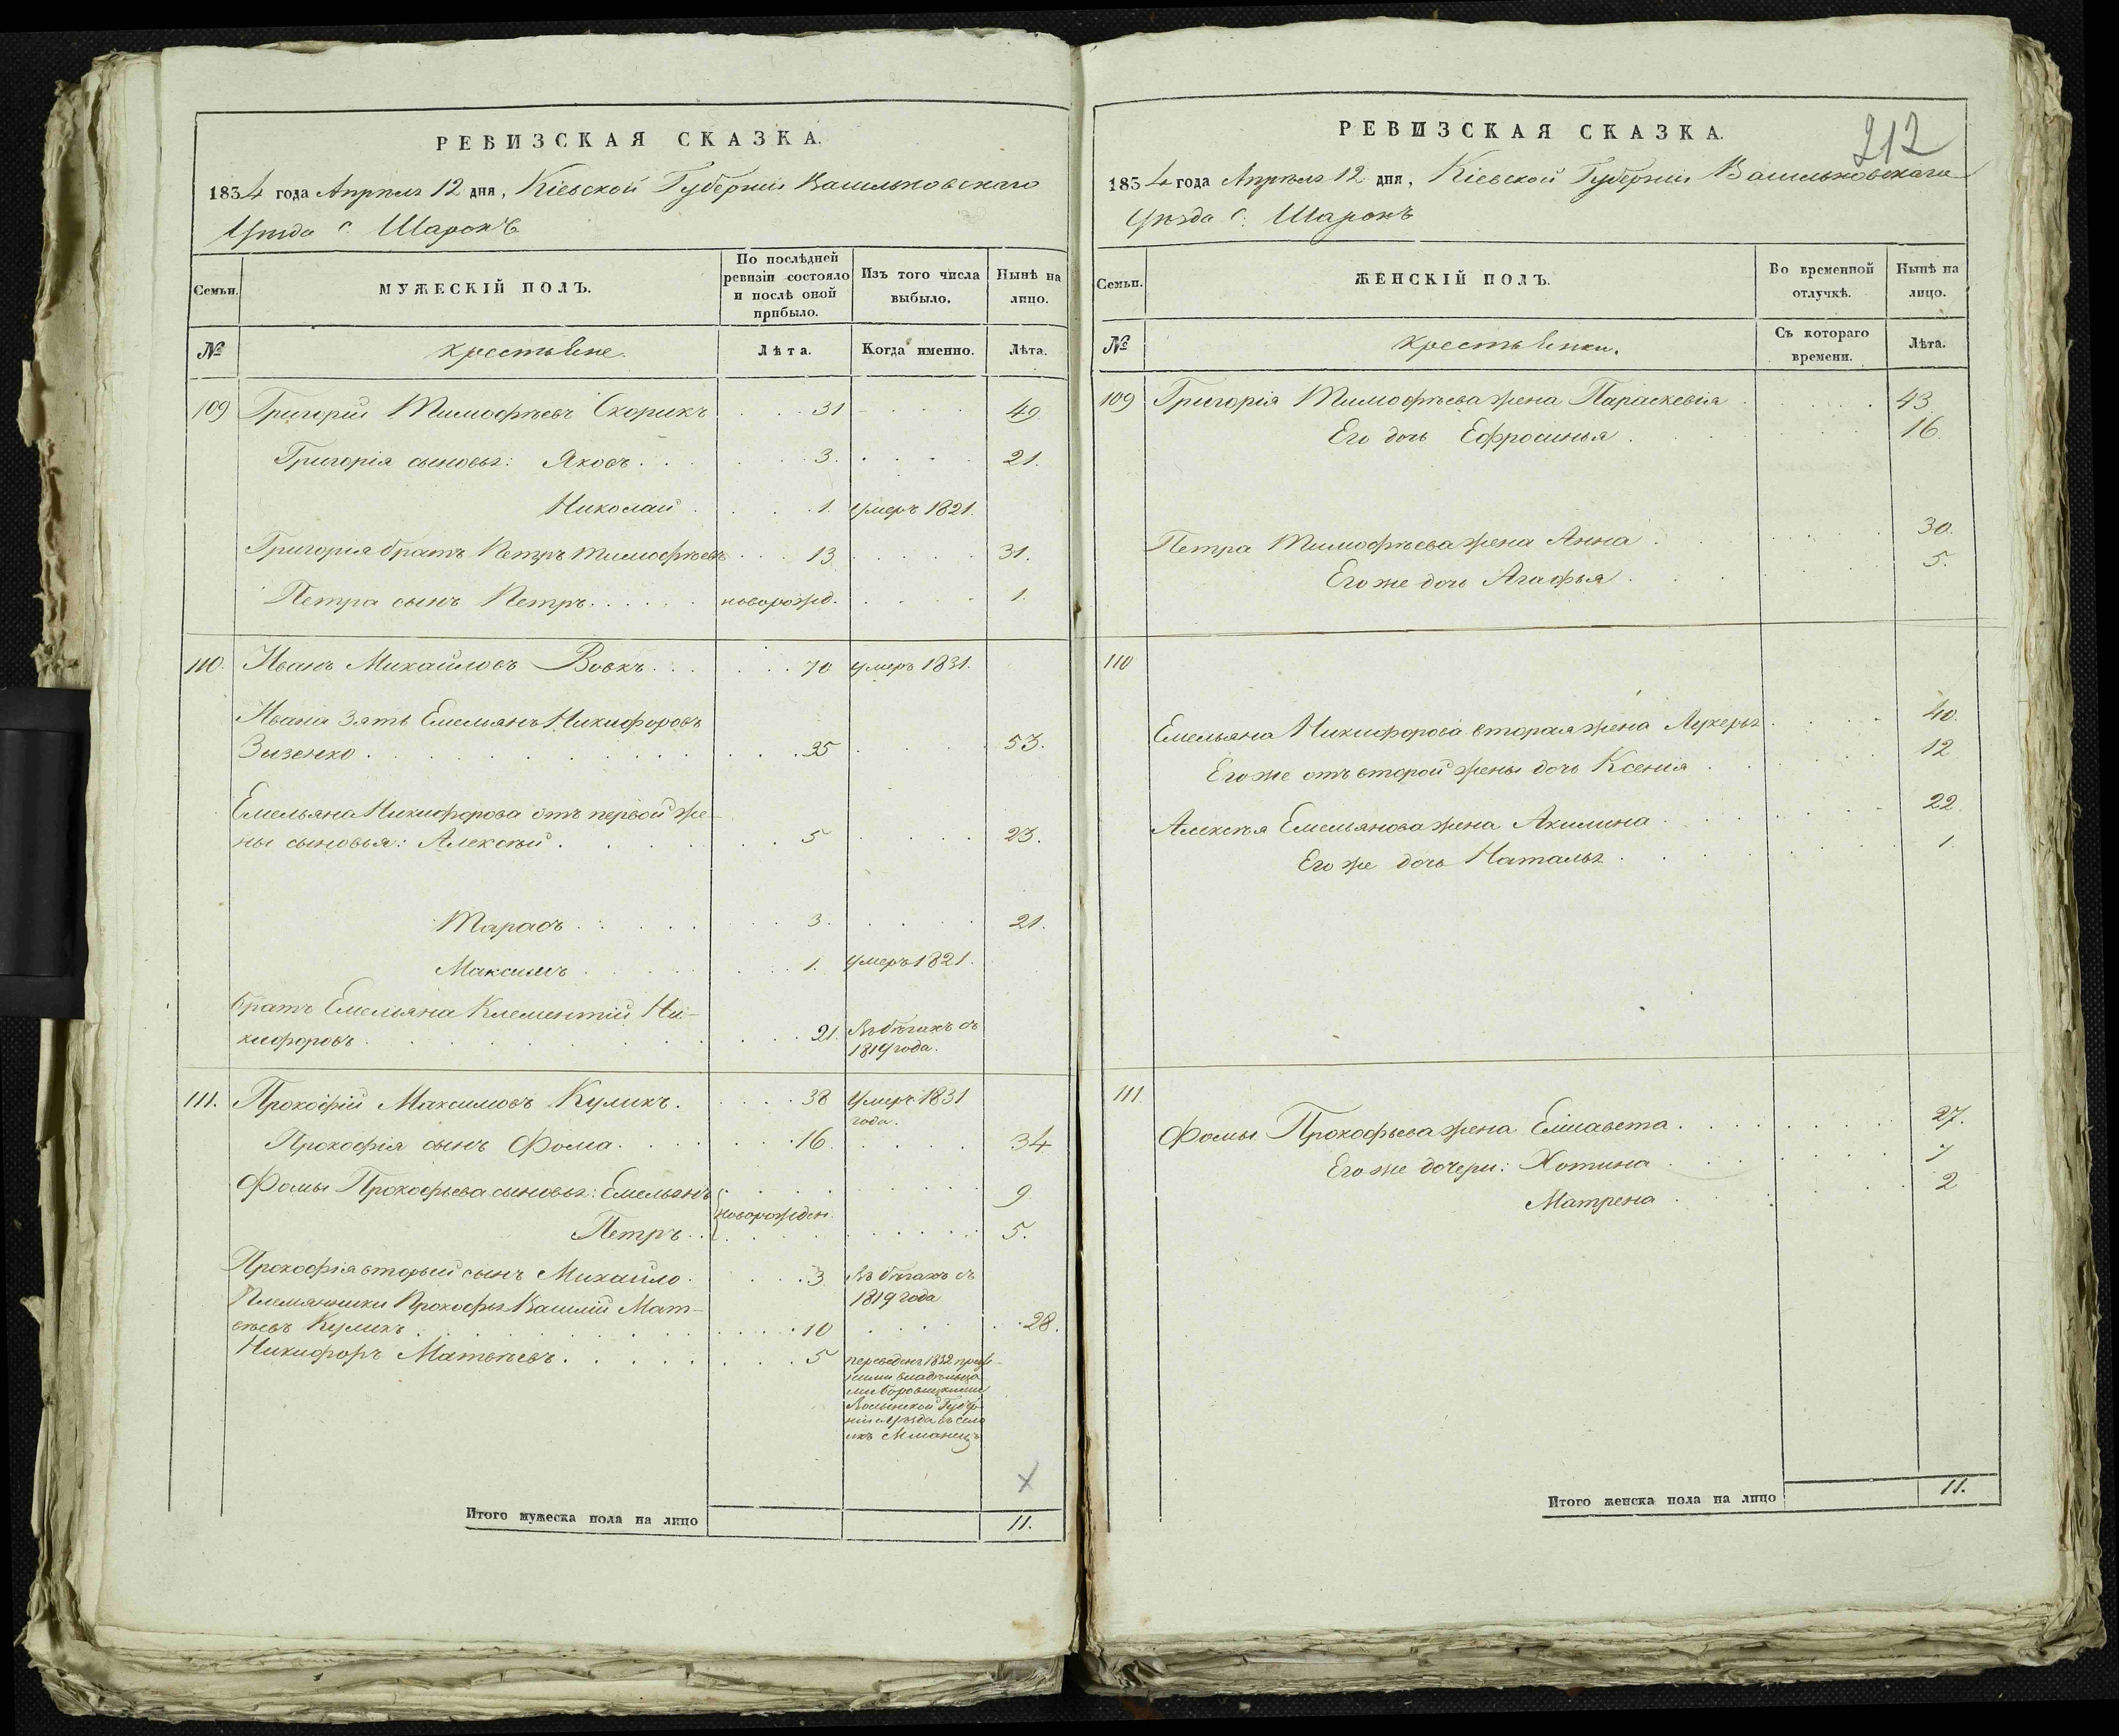 РЕВИЗСКАЯ СКАЗКА.
1834 года Апрѣля 12 дня, Кіевской Губерніи Васильковскаго
Уѣзда с. Шарокъ
Семьи.
МУЖЕСКІЙ ПОЛЪ.
По послѣдней
ревизіи состояло
и послѣ оной
прибыло.
Изъ того числа
выбыло.
Нынѣ на
лицо.
№
крестьяне.
Лѣта.
Когда именно.
Лѣта.
109 Григорій Тимофѣевъ Скорикъ 31 49.
Григорія сыновья: Яковъ 3. 21.
Николай 1. умеръ 1821.
Григорія братъ Петръ Тимофѣевъ 13 31.
Петра сынъ Петръ новорожд. 1.
110. Иванъ Михайловъ Вовкъ 70 умеръ 1831.
Ивана зять Емельянъ Никифоровъ
Зызенко 35 53.
Емельяна Никифорова отъ первой же-
ны сыновья: Алексѣй 5 23.
Тарасъ 3. 21.
Максимъ 1. умеръ 1821.
братъ Емельяна Клементій Ни-
кифоровъ 21. въ бѣгахъ съ
1819 года.
111. Прокофій Максимовъ Куликъ 38 умеръ 1831
года.
Прокофія сынъ Фома 16 34
Фомы Прокофьева сыновья: Емельянъ 9
новорожден.
Петръ 5.
Прокофія вторый сынъ Михайло 3 въ бѣгахъ съ
1819 года
Племянники Прокофія Василій Мат-
вѣевъ Куликъ 10 28.
Никифоръ Матвѣевъ 5 переведенъ 1832 преж-
ними владѣльца
ми
Волынской Губер
ніи уѣзда въ село
X
Итого мужеска пола на лицо 11.
212
РЕВИЗСКАЯ СКАЗКА.
1834 года Апрѣля 12 дня, Кіевской Губерніи Васильковскаго
Уѣзда с. Шарокъ
Семьи.
ЖЕНСКІЙ ПОЛЪ.
Во временной
отлучкѣ.
Нынѣ на
лицо.
№
крестьянки.
Съ котораго
времени.
Лѣта.
109 Григорія Тимофѣева жена Параскевія 43.
Его дочь Ефросинья 16.
Петра Тимофѣева жена Анна 30.
Его же дочь Агафья 5.
110
Емельяна Никифорова вторая жена Лукерья 40.
Его же отъ второй жены дочь Ксенія 12
Алексѣя Емельянова жена Акилина 22.
Его же дочь Наталья 1.
111
Фомы Прокофьева жена Елисавета 27.
Его же дочери: Хотина 7
Матрена 2
Итого женска пола на лицо 11.